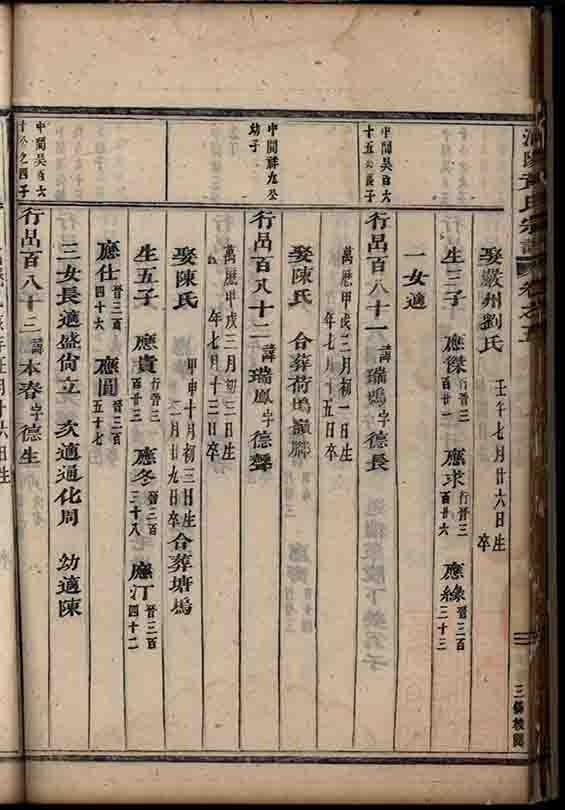 氏宗譜 卷之五
三
娶嚴州劉氏 壬午七月廿六日生 卒
生三子 應傑行晉三百廿一 應求行晉三百廿六 應緣晉三百三十三
一女適
十五公長子
行呂百八十一 諱瑞塢字德長
萬曆甲戌二月初一日生
年七月十五日卒
娶陳氏 合葬荷塢
幼子
行呂百八十二 諱瑞鳳字德聲
萬曆甲戌三月初三日生
年七月十三日卒
娶陳氏 甲申十月初三日生 二月廿九日卒 合葬塘塢
生五子 應貴行晉三百廿三 應冬晉三百三十八 應汀晉三百四十二
應仕晉三百四十六 應圓晉三百五十七
三女長適盛尙立 次適通化周 幼適陳
公之四子
行呂百八十三 諱本春字德生